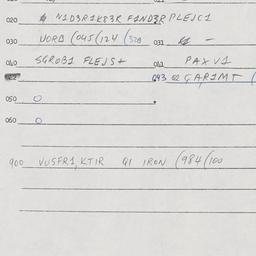 020 N1D3R1K83R F1ND3R PLEJC1
030 UORB (045(124 (328 031 -
040 SGROB1 FLEJS+ 041 PAXV1
043 GAR1MT (
050 0
060 0
900 VUSFR1, KTIR G1 IRON (984(100